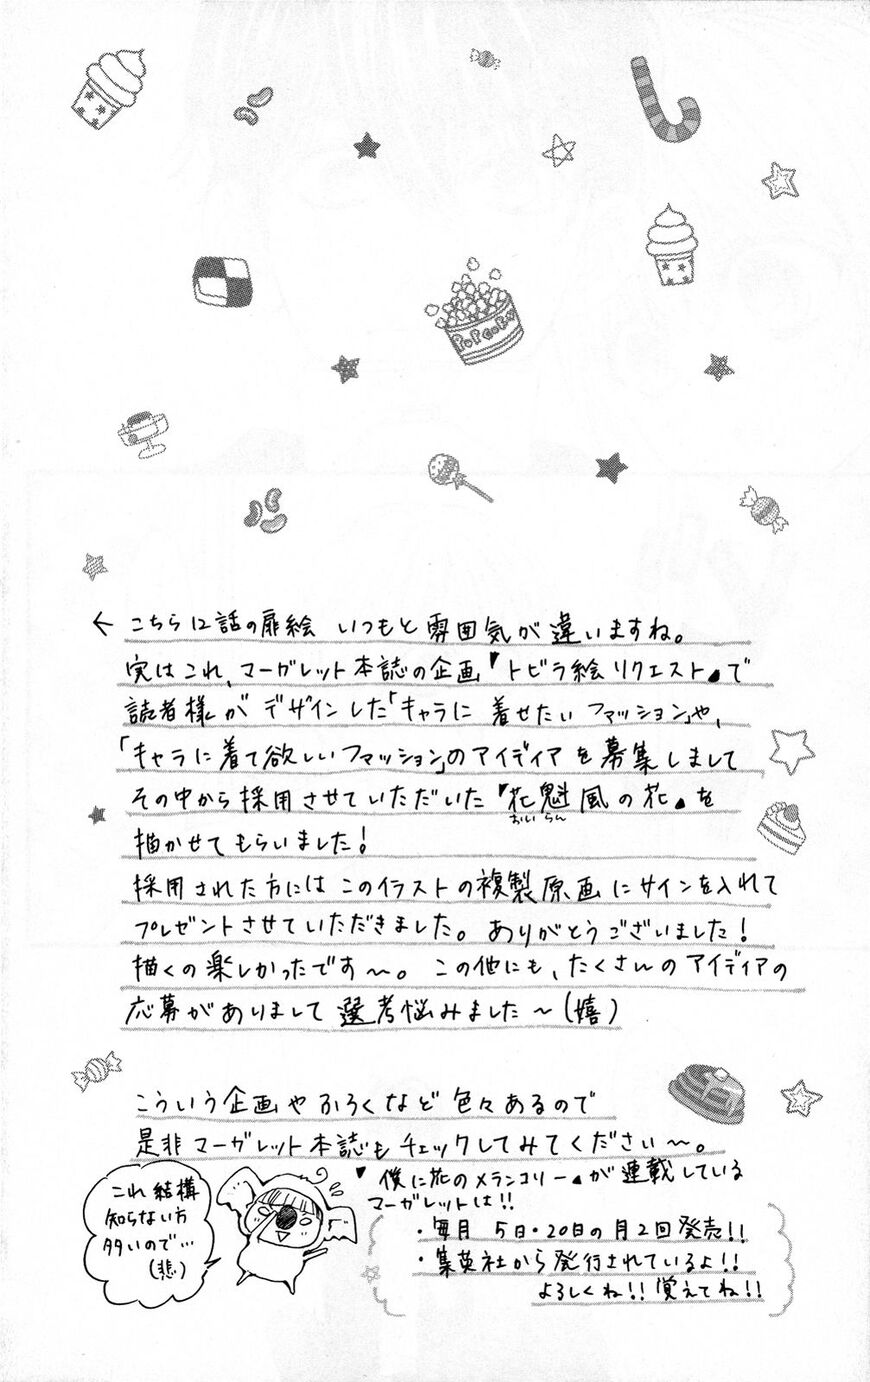 POPCORN
← こちら12話の扉絵 いつもと雰囲気が違いますね。
実はこれ、マーガレット本誌の企画『トビラ絵リクエスト』で
読者様がデザインした「キャラに 着せたい ファッション」や、
「キャラに着て欲しいファッション」のアイディアを募集しまして
その中から採用させていただいた『花魁風の花』を
おいらん
描かせてもらいました!
採用された方にはこのイラストの複製原画にサインを入れて
プレゼントさせていただきました。ありがとうございました!
描くの楽しかったです〜。この他にも、たくさんのアイディアの
応募がありまして選考悩みました〜(嬉)
こういう企画やふろくなど色々あるので
是非マーガレット本誌もチェックしてみてください〜。
これ結構
知らない方
多いので…
(悲)
『僕に花のメランコリー』が連載している
マーガレットは!!
・毎月 5日・20日の月2回発売!!
・集英社から発行されているよ!!
よろしくね!!覚えてね!!